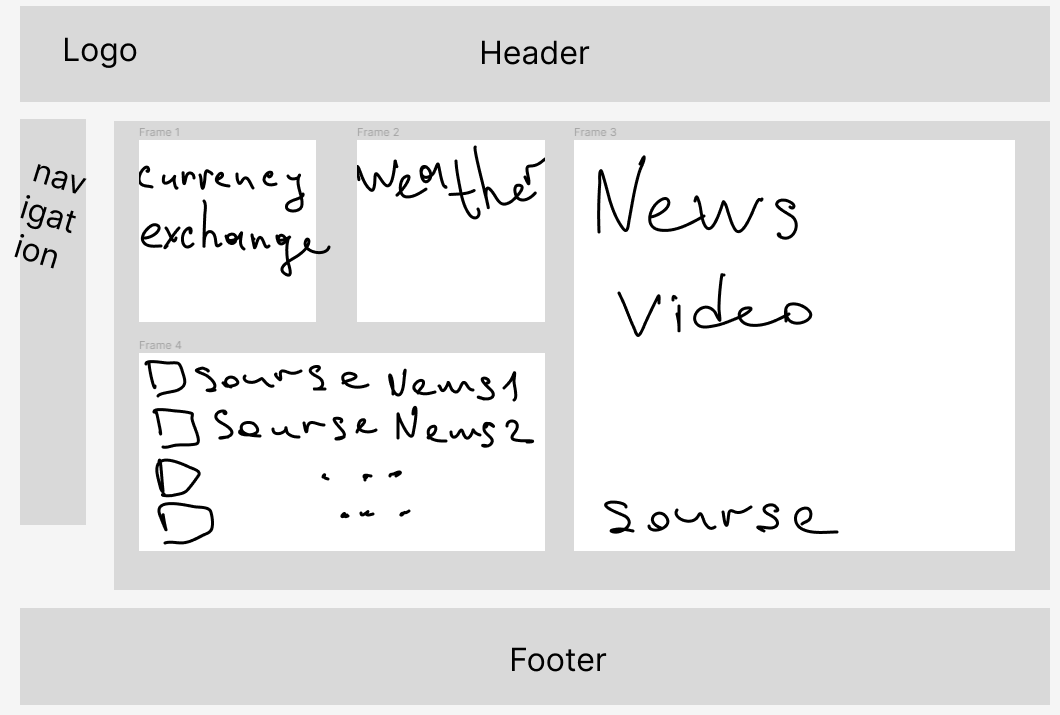 Logo
Header
nav
igat
ion
Frame 1
currency
exchange
Frame 2
weather
Frame 3
News
Video
Sourse
Frame 4
Sourse News1
Sourse News2
...
...
Footer